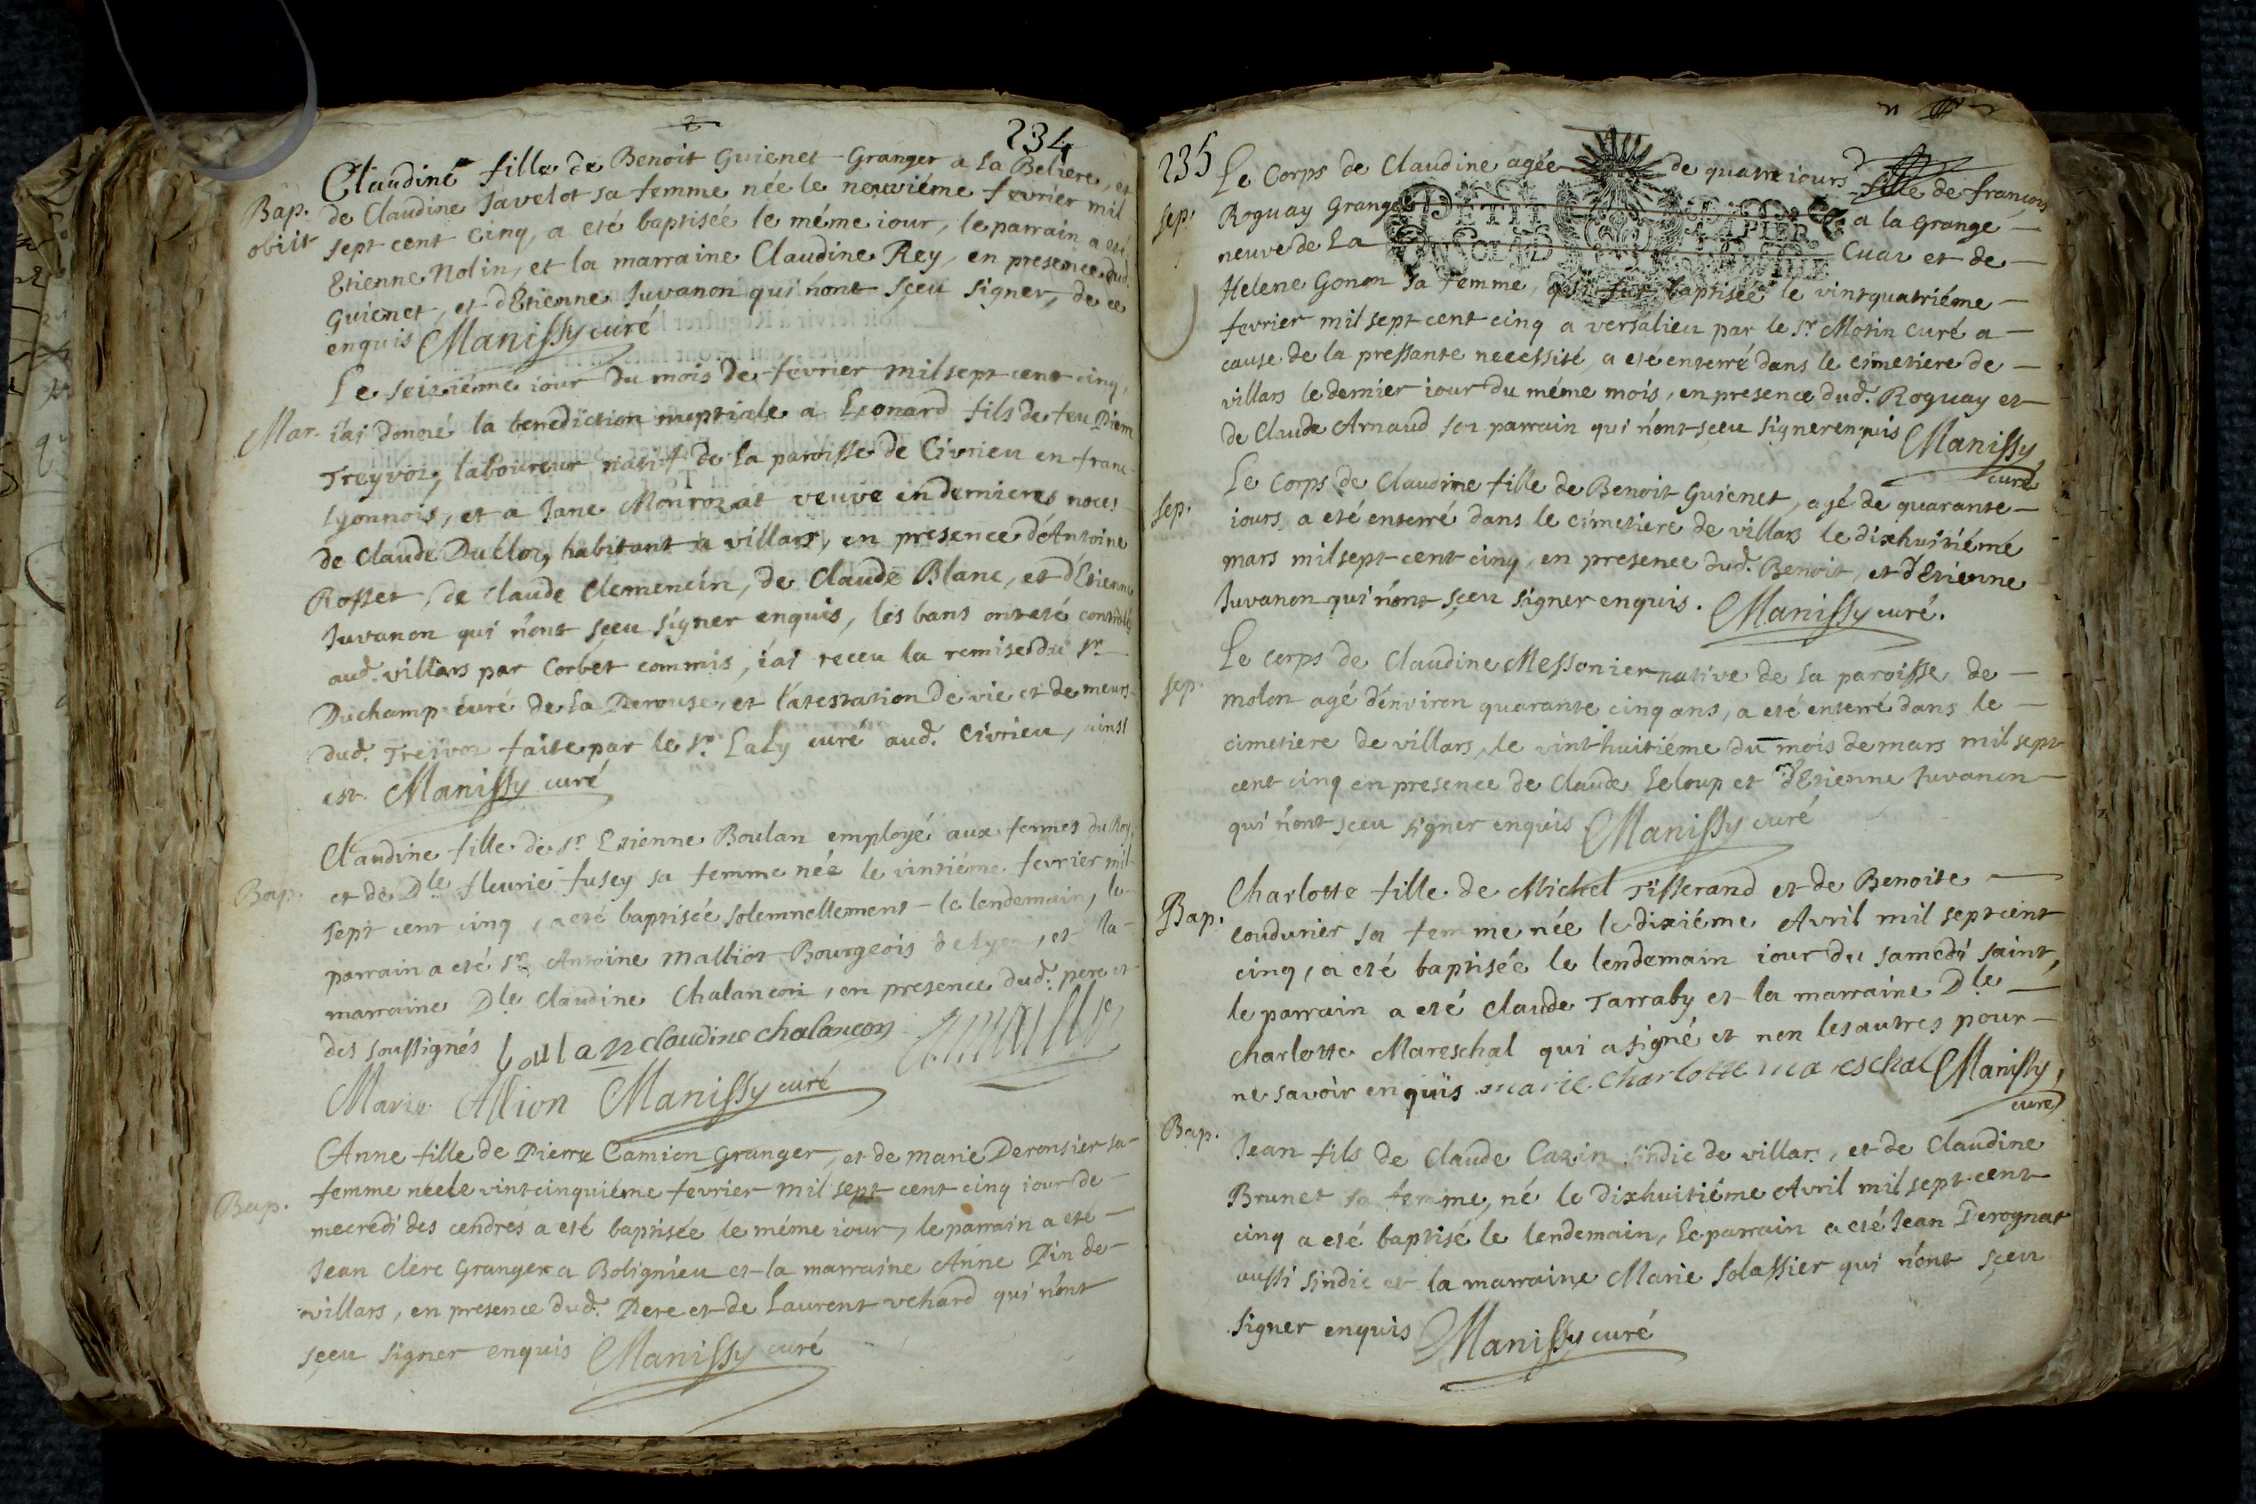 234
Claudine fille de Benoit Guienet Granger a La Beliere, et
Bap. de Claudine Javelot sa femme née le neuviéme fevrier mil
obiit sept cent cinq, a eté baptisée le méme iour, le parrain a eté
Etienne Nolin, et la marraine Claudine Rey, en presence dud.
Guienet, et d'Etienne Juvanon qui n'ont sçeu signer, de ce
enquis Manissy curé
Le seiziéme iour du mois de fevrier mil sept cent cinq,
Mar. i'ai donné la benediction nuptiale a Leonard fils de feu Pierre
Treyvoz, laboureur natif de la paroisse de Civrieu en franc
Lyonnois, et a Jane Monrozat veuve en dernieres noces
de Claude Duclos, habitant a villars, en presence d'Antoine
Rosset, de Claude Clemencin, de Claude Blanc, et d'Etienne
Juvanon qui n'ont sçeu signer enquis, les bans ont eté controlés
aud. villars par Corbet commis, i'ai receu la remise du sr.
Duchamp curé de La Perouse, et l'atestation de vie et de meurs
dud. Treivoz faite par le sr. Laly curé aud. Civrieu, ainsi
est. Manissy curé
Claudine fille de sr. Etienne Boulan employé aux fermes du Roy,
Bap. et de Dle. fleurie fusey sa femme née le vintiéme fevrier mil
sept cent cinq, a eté baptisée solemnellement le lendemain, le
parrain a eté sr. Antoine Malliot Bourgeois de Lyon, et la
marraine Dle. Claudine Chalancon, en presence dud. pere et
des soussignés boulan claudine chalancon
Marie Allion Manissy curé
Anne fille de Pierre Camion Granger, et de marie Deronsier sa
Bap. femme née le vintcinquiéme fevrier mil sept cent cinq iour de
mecredi des cendres a eté baptisée le méme iour, le parrain a eté
Jean Clerc Granger a Bolignieu et la marraine Anne Pin de
villars, en presence dud. Pere et de Laurent vehard qui n'ont
sçeu signer enquis Manissy curé
235
Le Corps de Claudine agée de quatre iours fille de françois
sep. Roguay Granger a la Grange
neuve de La Cuar et de
Helene Gonon sa femme, qui fut baptisée le vintquatriéme
fevrier mil sept cent cinq a versalieu par le sr. Morin curé a
cause de la pressante necessité, a eté enterré dans le cimetiere de
villars le dernier iour du méme mois, en presence dud. Roguay et
de Claude Arnaud son parrain qui n'ont sceu signer enquis Manissy
curé
Le Corps de Claudine fille de Benoit Guienet, agé de quarante
sep. iours, a eté enterré dans le cimetiere de villars le dixhuitiéme
mars mil sept cent cinq, en presence dud. Benoit, et d'Etienne
Juvanon qui n'ont sçeu signer enquis. Manissy curé.
Le corps de Claudine Messonier native de la paroisse de
sep. molon agé d'environ quarante cinq ans, a eté enterré dans le
cimetiere de villars, le vint-huitiéme du mois de mars mil sept
cent cinq en presence de Claude Leloup et d'Etienne Juvanon
qui n'ont sçeu signer enquis Manissy curé
Charlotte fille de Michel Tisserand et de Benoite
Bap. coudurier sa femme née le dixiéme Avril mil sept cent
cinq, a eté baptisée le lendemain iour du samedi saint,
le parrain a eté Claude Tarraby et la marraine Dle.
Charlotte Mareschal qui a signé et non les autres pour
ne savoir enquis marie charlotte mareschal Manissy,
curé
Bap.
Jean fils de Claude Cazin sindic de villars, et de Claudine
Brunet sa femme, né le dixhuitiéme Avril mil sept cent
cinq a eté baptisé le lendemain, Le parrain a eté Jean Perognat
aussi sindic et la marraine Marie Solassier qui n'ont sçeu
signer enquis Manissy curé